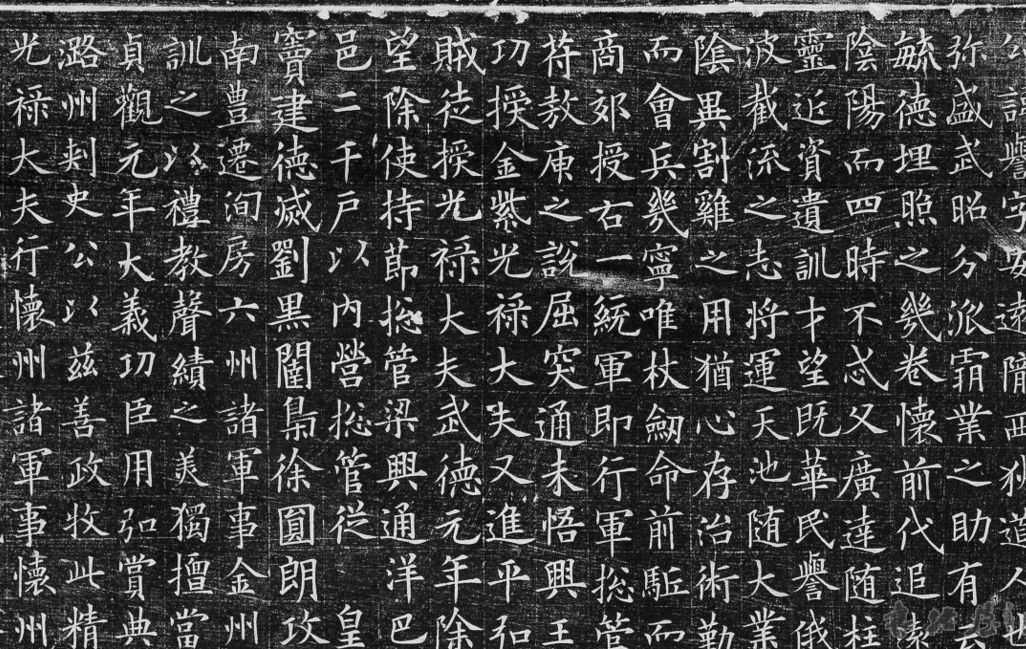 公諱譽字安遠隴西狄道人
弥盛武昭分派霸業之助有
毓德埋照之幾卷懷前代追
陰陽而四時不忒父廣達随柱
靈近資遺訓才望既華民譽俄
波截流之志将運天池随大業
陰異割雞之用猶心存治術勤
而會兵幾寧唯杖劒命前駈而
商郊授右一統軍即行軍捴管
荷敖庾之說屈突通未悟興王
功授金紫光禄大夫又進平弘
賊徒授光禄大夫武德元年除
望除使持莭捴管梁興通洋巴
邑二千户以内營捴管從 皇
竇建德滅劉黑闥梟徐圓朗攻
南豊遷洵房六州諸軍事金州
訓之以禮教聲績之羙獨擅當
貞觀元年大義功臣用弘賞典
潞州刺史公以兹善政牧此精
光禄大夫行懷州諸軍事懷州